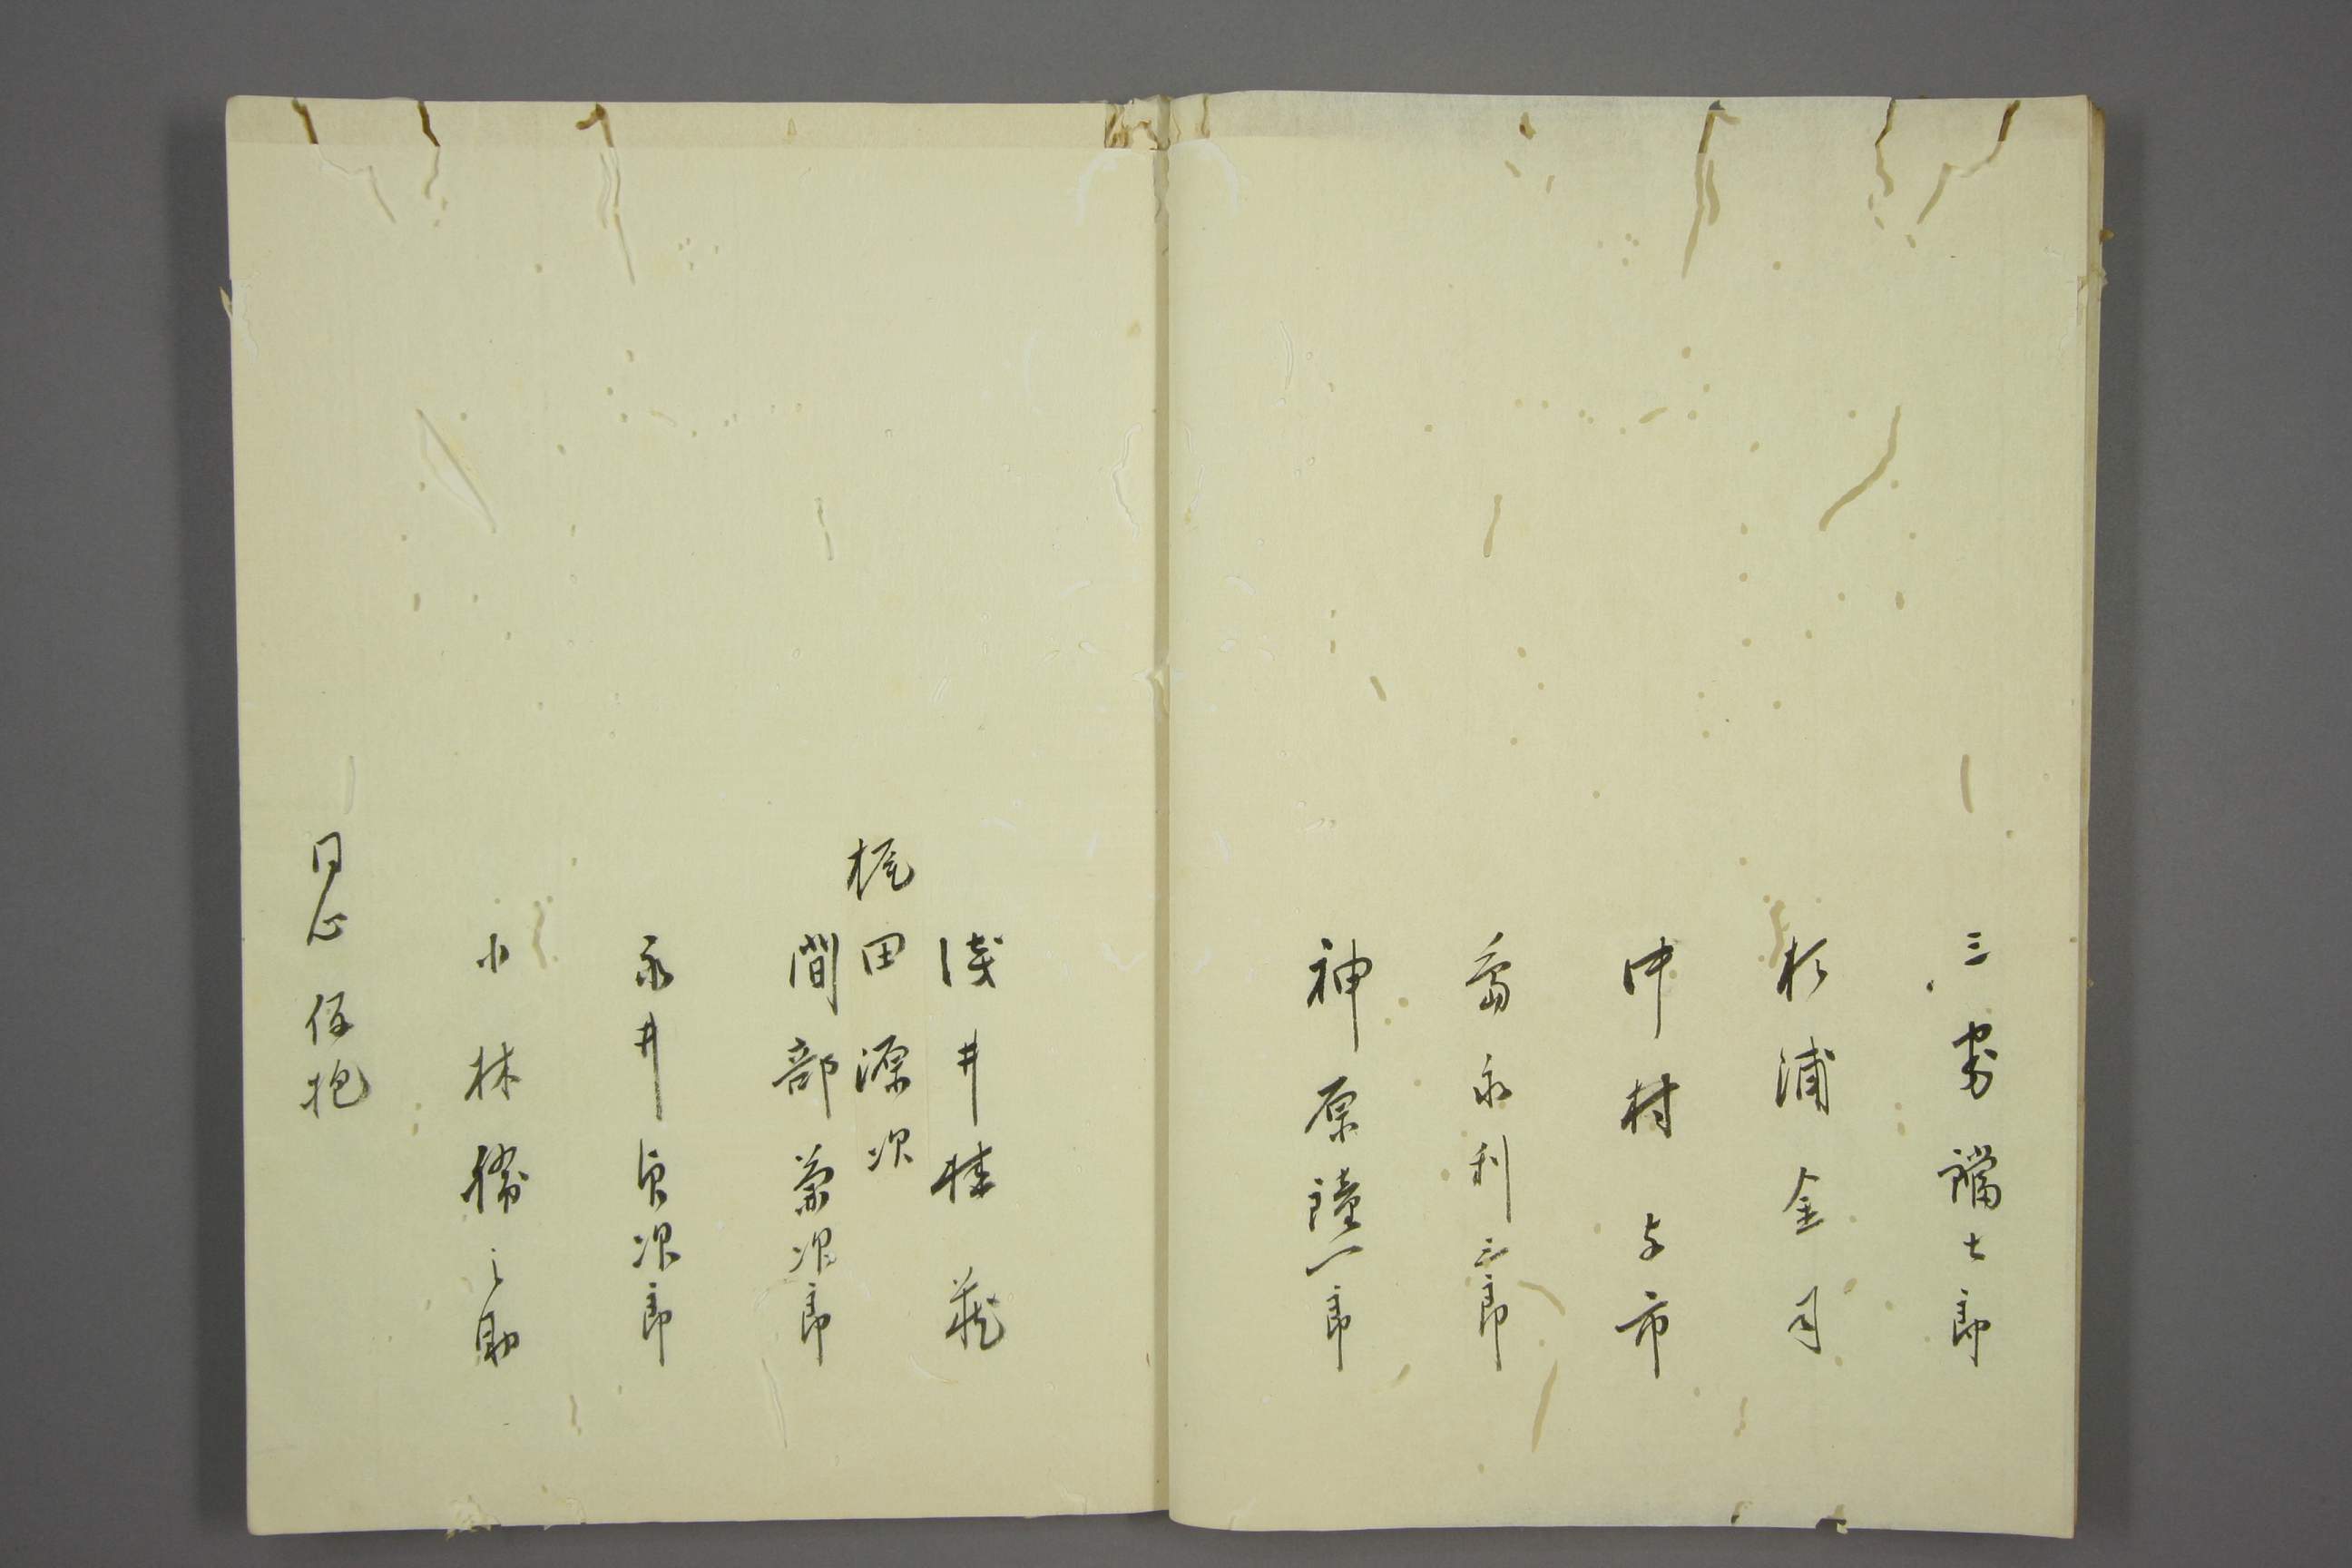 三 七郎
杉浦金司
中村与市
永利三郎
神原 一郎
浅井桂蔵
梶田源次
間部 次郎
永井貞次郎
小林勝之助
同心 抱